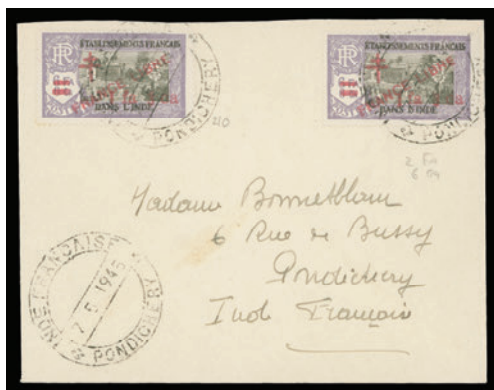 RF
ETABLISSEMENTS FRANÇAIS
FRANCE LIBRE
DANS L'INDE
PONDICHERY
RF
ETABLISSEMENTS FRANÇAIS
FRANCE LIBRE
DANS L'INDE
PONDICHERY
Madame
6 Rue de Bussy
Pondichery
Inde Française
INDE-FRANÇAISE
7 5 1945
PONDICHERY